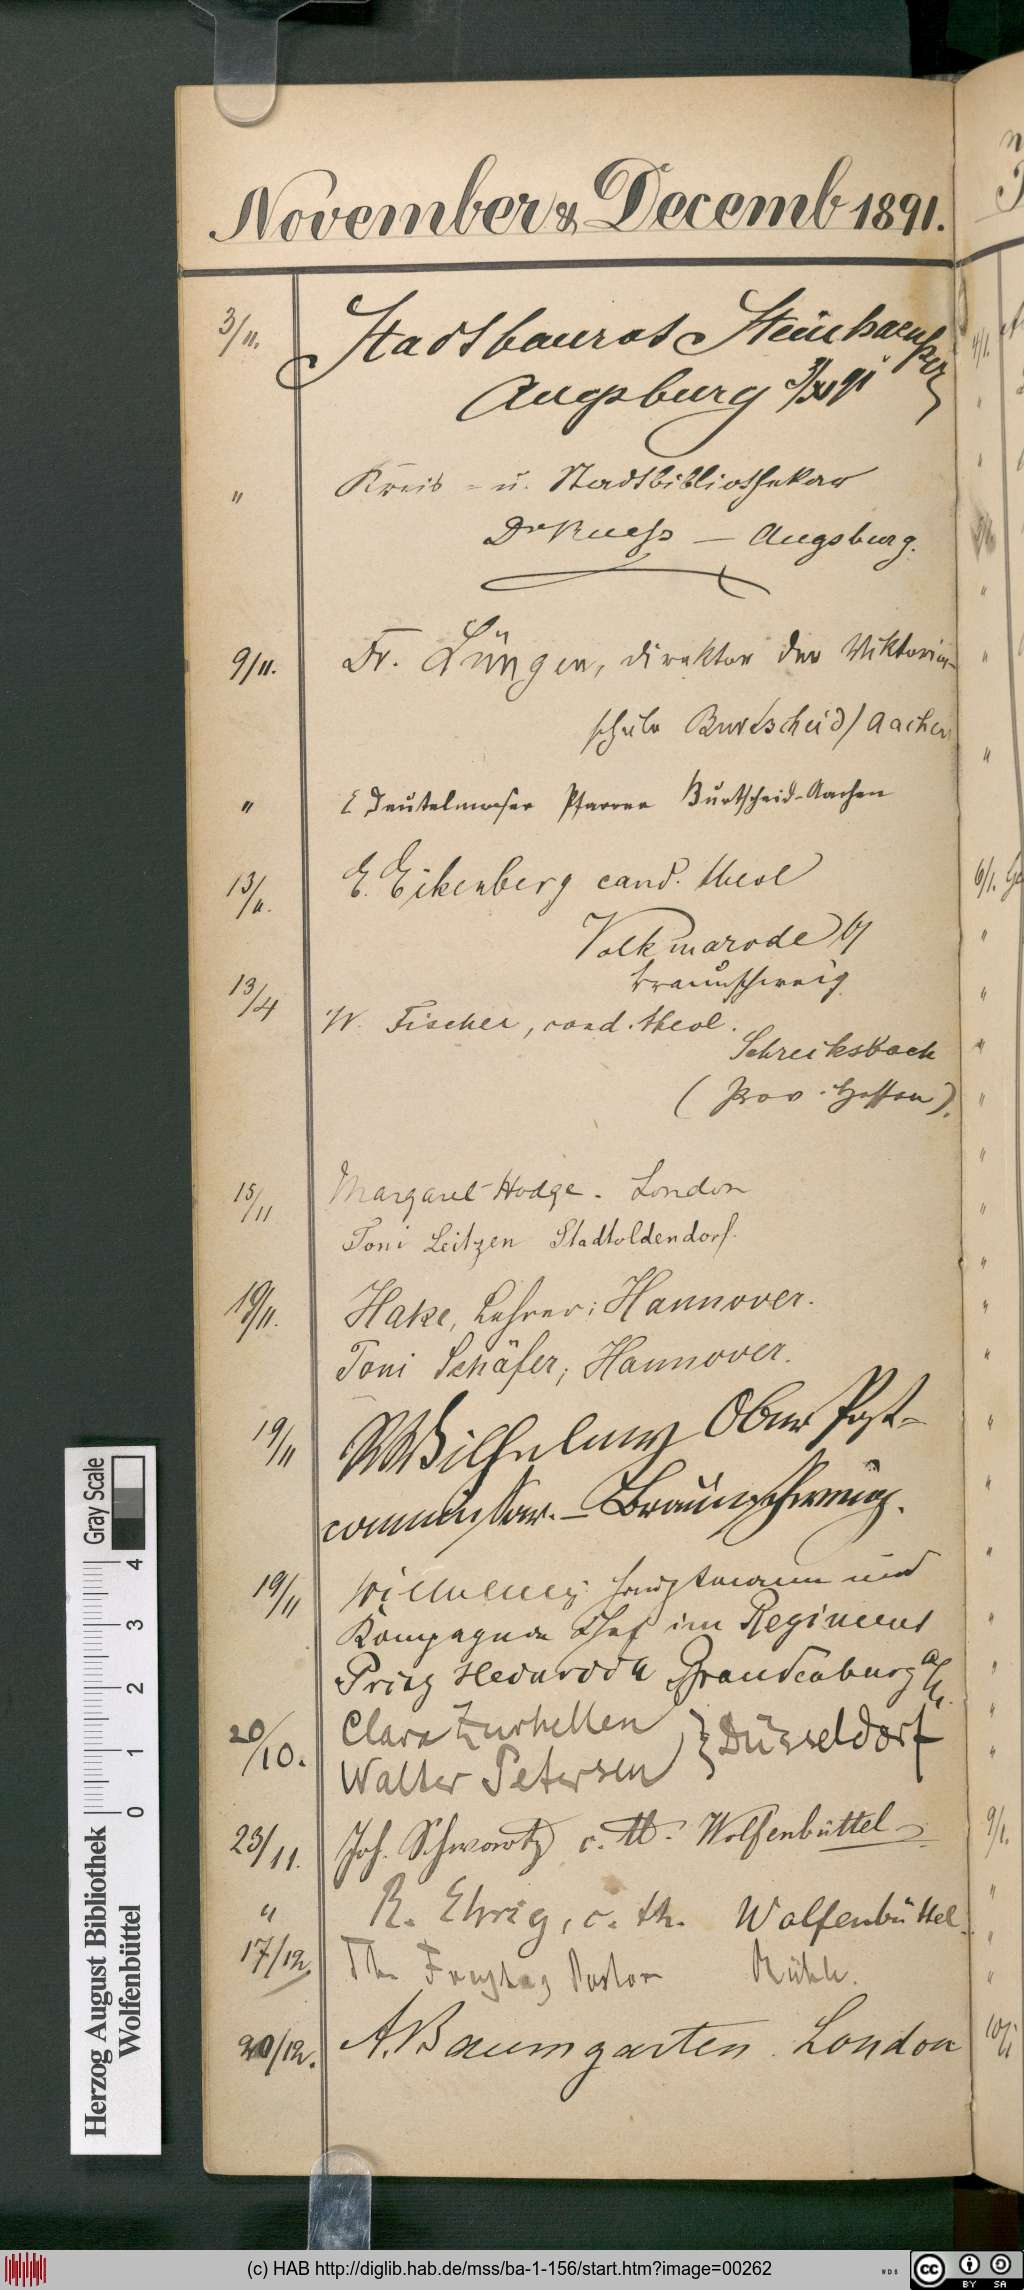 November & Decemb 1891.
3/11. Stadtbaurat Steinhaeußer
Augsburg 3/XI 91
" Kreis- u. Stadtbibliothekar
Dr Ruess — Augsburg.
9/11. Dr. Lüngen, Direktor der Viktoria-
schule Burtscheid/Aachen
" E Deutelmoser Pfarrer Burtscheid-Aachen
13/11. E. Eikenberg cand. theol
Volkmarode b/
Braunschweig
13/4 W. Fischer, cand. theol.
Schrecksbach
(Prov. Hessen).
15/11 Margaret Hodge. London
Toni Leitzen Stadtoldendorf.
19/11. Hake, Lehrer; Hannover.
Toni Schäfer, Hannover.
19/11 Wilhelmy Ober Post-
commissar. – Braunschweig.
19/11 Wilhelmy Hauptmann und
Kompagnie Chef im Regiment
Prinz Brandenburg
20/10. Clara Zurhellen } Düsseldorf
Walter Petersen
23/11. Joh. Schwartz c. th. Wolfenbüttel
" R. Ehrig, c. th. Wolfenbüttel
17/12. Th. Freytag Pastor Rühle.
20/12. A. Baumgarten. London
4/1.
6/1.
9/1.
Herzog August Bibliothek
Wolfenbüttel
Gray Scale
0 1 2 3 4
(c) HAB http://diglib.hab.de/mss/ba-1-156/start.htm?image=00262
cc BY SA